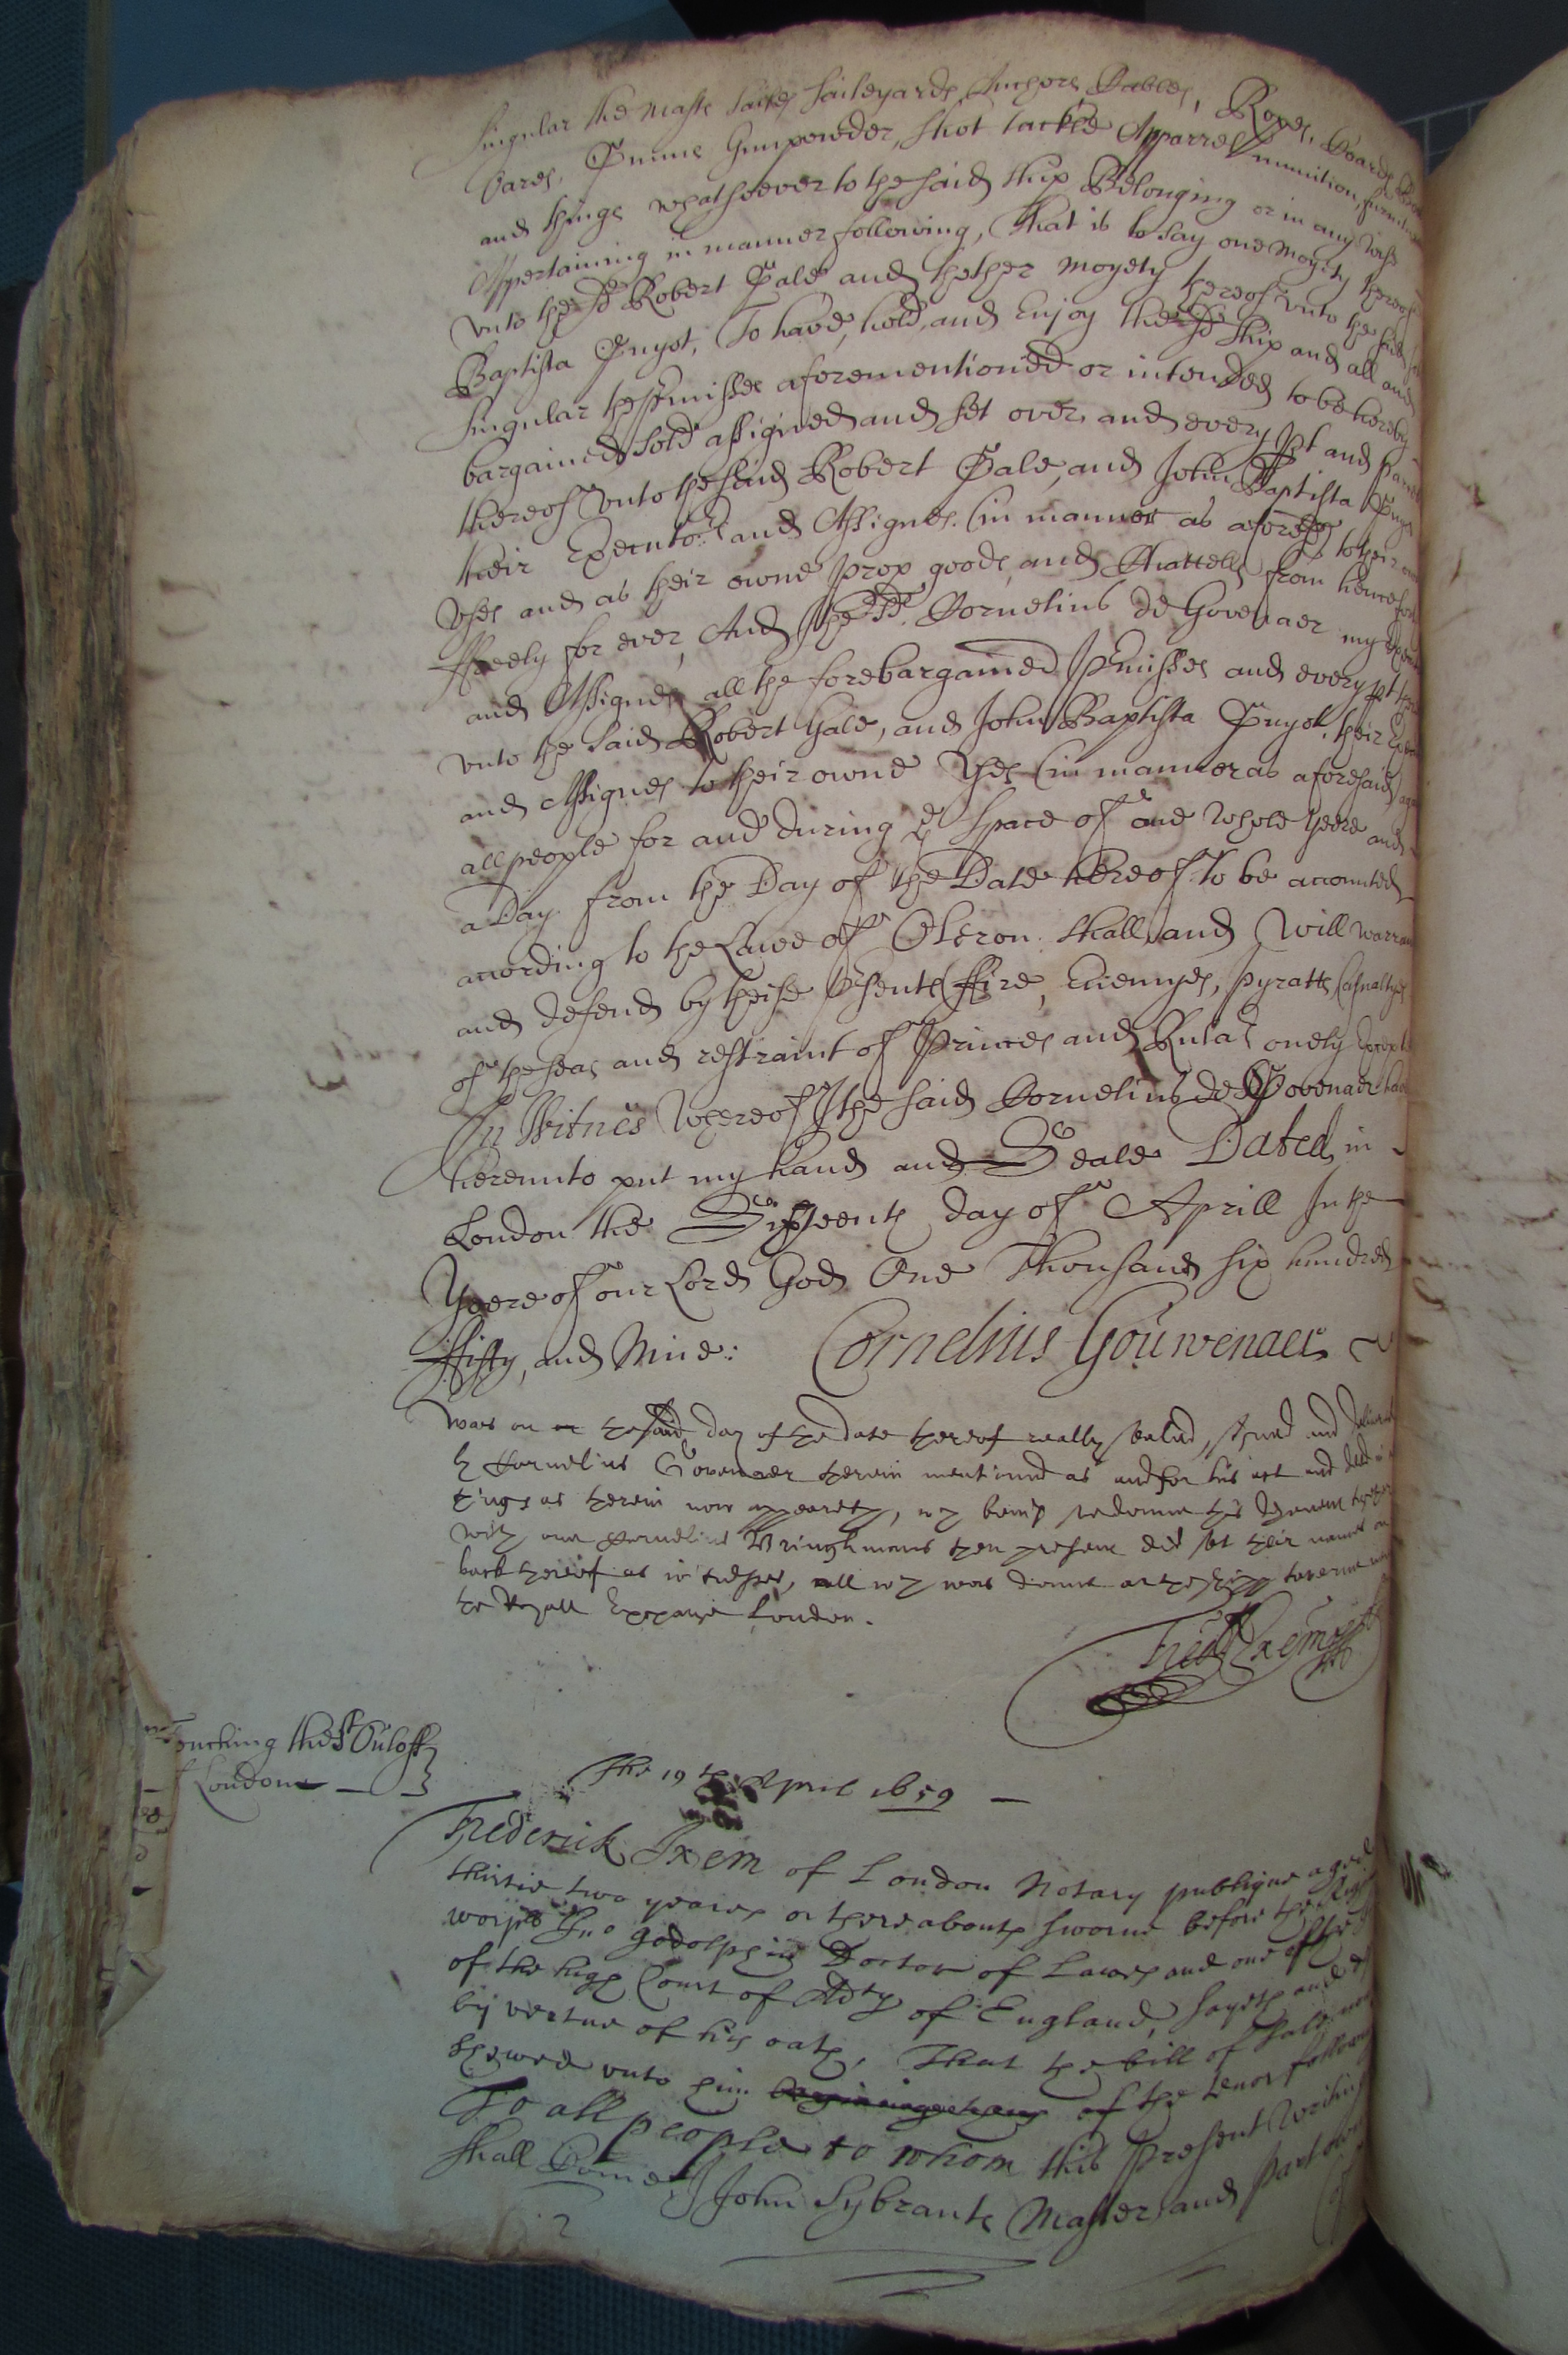 Singular the Masts Sailes Saileyards Anchors, Cables, Ropes, Boards
Oares, Gunns Gunpowder, Shot tackle Apparrel munition, furniture
and things whatsoever to the said ship Belonging or in any wise
Appertaining in manner following, That is to say one Moyety thereof
vnto the sd Robert Gale and thother Moyety thereof vnto the said
Baptista Guyot, To have, hold, and Enjoy the sd ship and all and
Singular the pmisses aforementioned or intended to be hereby
bargained sold assigned and set over, and every pt and parcell
thereof Vnto the said Robert Gale, and John Baptista Guyot
their Executors and Assignes. (in manner as aforesd) to their owne
Vses and as their owne prop goods and Chattells from henceforth
ffreely for ever, And I the sd. Cornelius de Govenaer my
and Assignes all the forebargained pmisses and every pt
vnto the said Robert Gale, and John Baptista Guyot, their
and Assignes to their owne Vses (in manner as aforesaid)
all people for and during ye Space of one whole Yeere and
a Day from the Day of the Date hereof. To be accounted
according to the Lawe of Oleron. shall and Will warrant
and defend by theise psents (ffire, Enemyes, Pyratts, Casualtyes
of the seas and restraint of Princes and Rulars onely Excepted
In Witnes whereof I the said Cornelius de Govenaer have
hereunto put my hand and Seale Dated in
London the Sixteenth day of Aprill In the
Yeere of our Lord God One Thousand six hundred
ffifty, and Nine: Cornelius Gouwenaer
was on the said day of the date thereof really sealed, signed and delivered
by Cornelius Govenaer therein mentioned as and for his act and deed in
things as therein now appeareth, wch being soe donne this deponent together
with one Cornelius Bringhmans then present did set their names on
back thereof as witnesses, all wch was donne at the shipp taverne
the Royall Exchange London.
touching the St Oulofs
London
The 19th April 1659
Frederick Ixem of London Notary publique aged
thirtie two yeares or thereabouts sworne before the
worpll Jno Godolphin Doctor of Lawes and one of the
of the high Court of Adty of England, sayeth and
by vertue of his oath, That the bill of sale now
shewed vnto him of the tenor following
To all people to whom this present Writing
shall Come, I John Sybrants Master and part owner